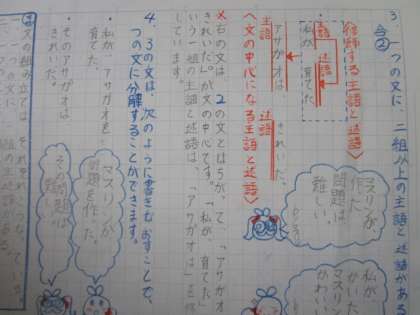 3 一つの文に、二組以上の主語と述語がある
例②
〈修飾する主語と述語〉
主語 述語
私が 育てた
アサガオは きれいだ。
主語 述語
〈文の中心になる主語と述語〉
※右の文は、2の文とはちがって、「アサガオは
きれいだ。」が文の中心です。「私が、育てた」
という一組の主語と述語は、「アサガオは」を修飾
しています。
4、3の文は、次のように書きなおすことで、
つの文に分解することができます。
・私が、アサガオを
育てた。
・そのアサガオは
きれいだ。
マスリンが
作った
問題は、
難しい。
私が
かいた
マスリンは
かわいい
マスリンが
問題を作った。
その問題は
難しい。
文の組み立ては、それぞれこうなっている。
一つの文に、一組の主語と述語がある。